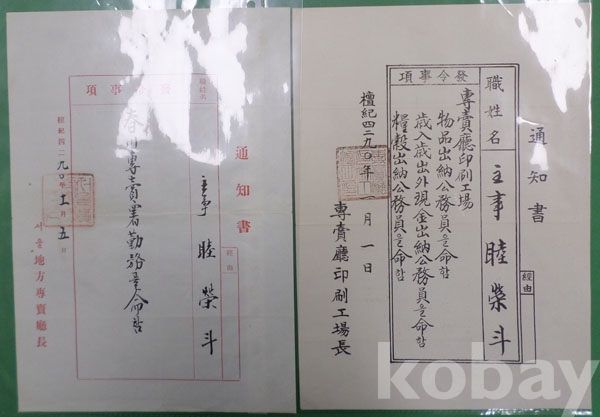 通知書
經由
職姓名 主事 睦榮斗
發令事項
專賣廳印刷工場
物品出納公務員을命함
歲入歲出外現金出納公務員을命함
糧穀出納公務員을命함
檀紀四二九〇年 月一日
專賣廳印刷工場長
通知書
經由
主事 睦榮斗
事項
春川專賣署勤務를命함
檀紀四二九〇年 月五日
서울地方專賣廳長
kobay